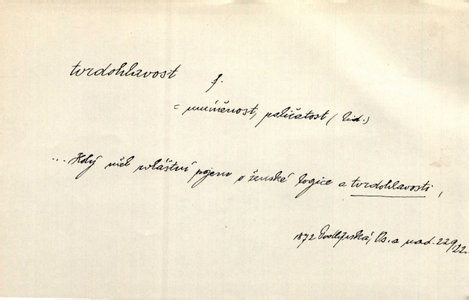 tvrdohlavost f.
= umíněnost, paličatost (lid.)
... Který měl zvláštní pojem o ženské logice a tvrdohlavosti,
1872 Světlá, a nad. 229/22.